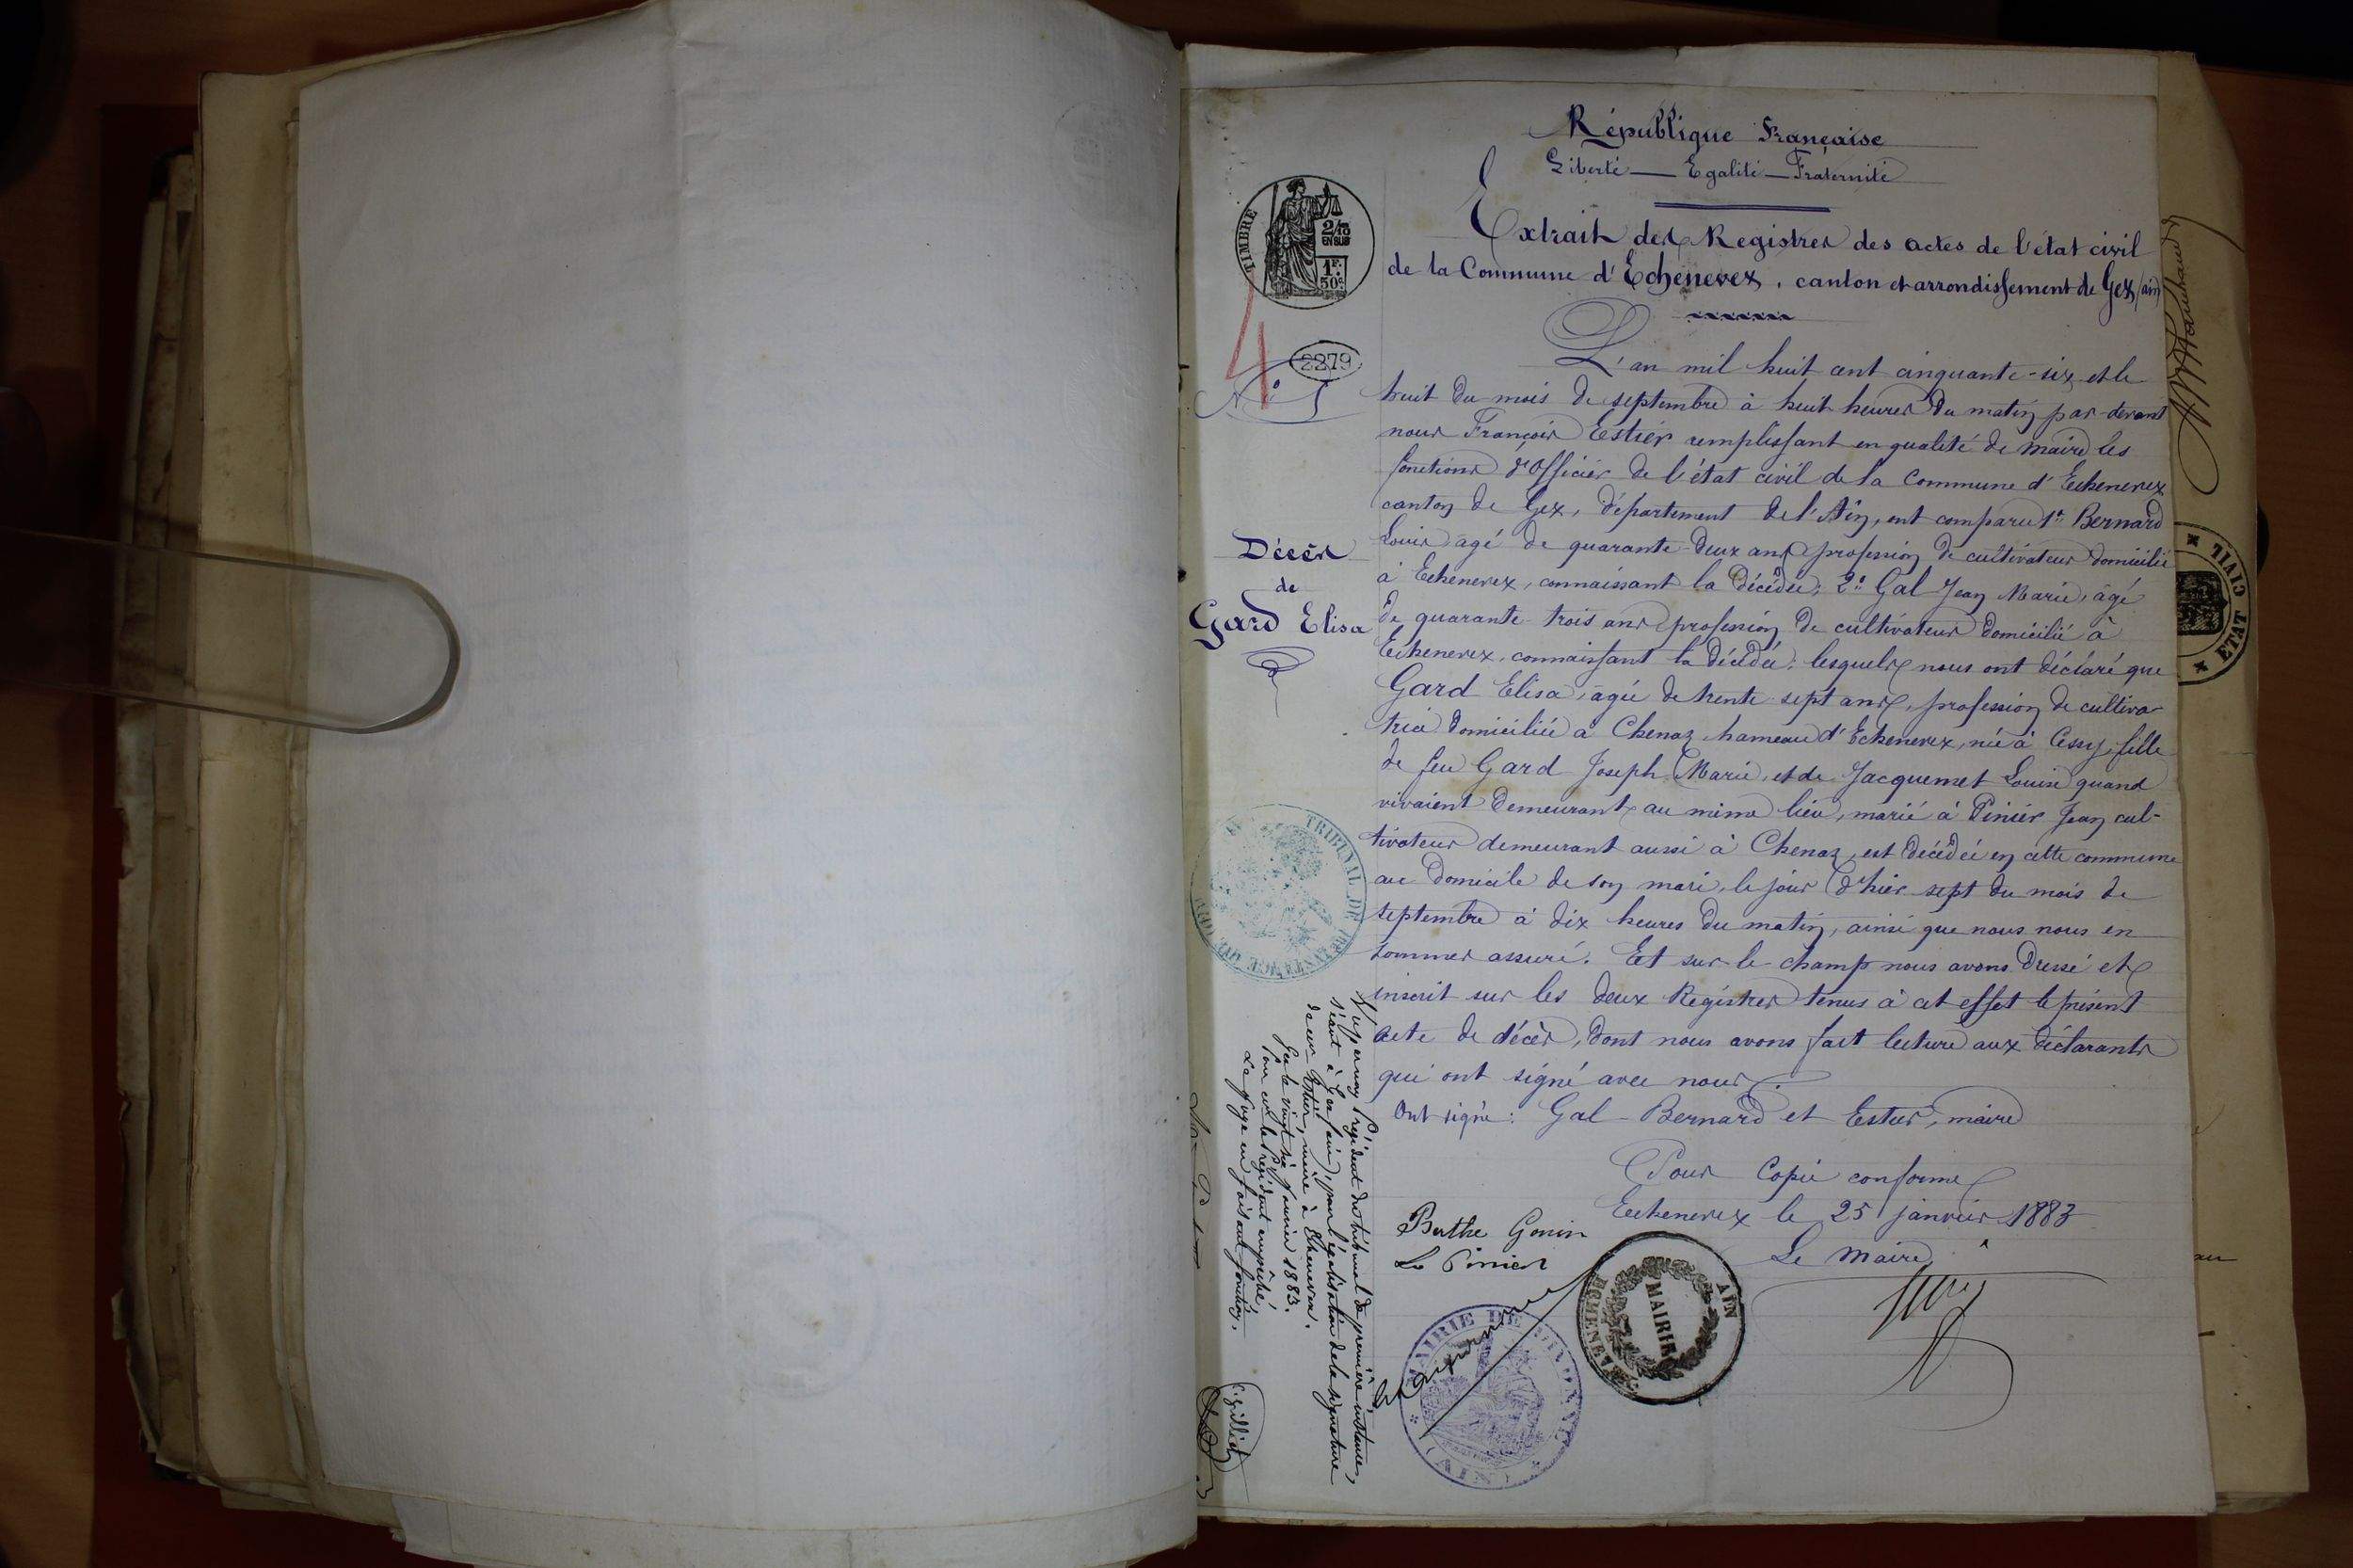 République Française
Liberté — Egalité — Fraternité
Extrait des Registres des actes de l'état civil
de la Commune d'Echenevex, canton et arrondissement de Gex (ain)
TIMBRE
2/10
EN SUS
1F.
50c.
4
2279
N° 5
L'an mil huit cent cinquante-six et le
huit du mois de septembre à huit heures du matin par-devant
nous François Estier remplissant en qualité de maire les
fonctions d'Officier de l'état civil de la Commune d'Echenevex
canton de Gex, département de l'Ain, ont comparu 1° Bernard
Louis âgé de quarante-deux ans profession de cultivateur domicilié
à Echenevex, connaissant la décédée; 2° Gal Jean Marie, âgé
de quarante-trois ans profession de cultivateur domicilié à
Echenevex, connaissant la décédée; lesquels nous ont déclaré que
Gard Elisa, âgée de trente-sept ans, profession de cultiva-
trice domiciliée à Chenaz hameau d'Echenevex, née à Cessy, fille
de feu Gard Joseph Marie, et de Jacquemet Louise quand
vivaient demeurant au même lieu, marié à Pinier Jean cul-
tivateur demeurant aussi à Chenaz, est décédée en cette commune
au domicile de son mari, le jour d'hier sept du mois de
septembre à dix heures du matin, ainsi que nous nous en
sommes assuré. Et sur-le-champ nous avons dressé et
inscrit sur les deux Registres tenus à cet effet le présent
acte de décès, dont nous avons fait lecture aux déclarants
qui ont signé avec nous.
Ont signé: Gal - Bernard et Estier, maire
Pour Copie conforme
Echenevex le 25 janvier 1883
Le Maire
Décès
de
Gard Elisa
TRIBUNAL DE 1RE INSTANCE
Vu par nous Président du tribunal de première instance,
séant à Gex (ain), pour légalisation de la signature
de M Estier, maire à Echenevex.
Gex le vingt six Janvier 1883.
Pour le Président empêché,
Le Juge en faisant fonction,
Berthe Gonin
L. Pinier
MAIRIE DE DIVONNE
(AIN)
MAIRIE
AIN
ECHENEVEX
ETAT CIVIL